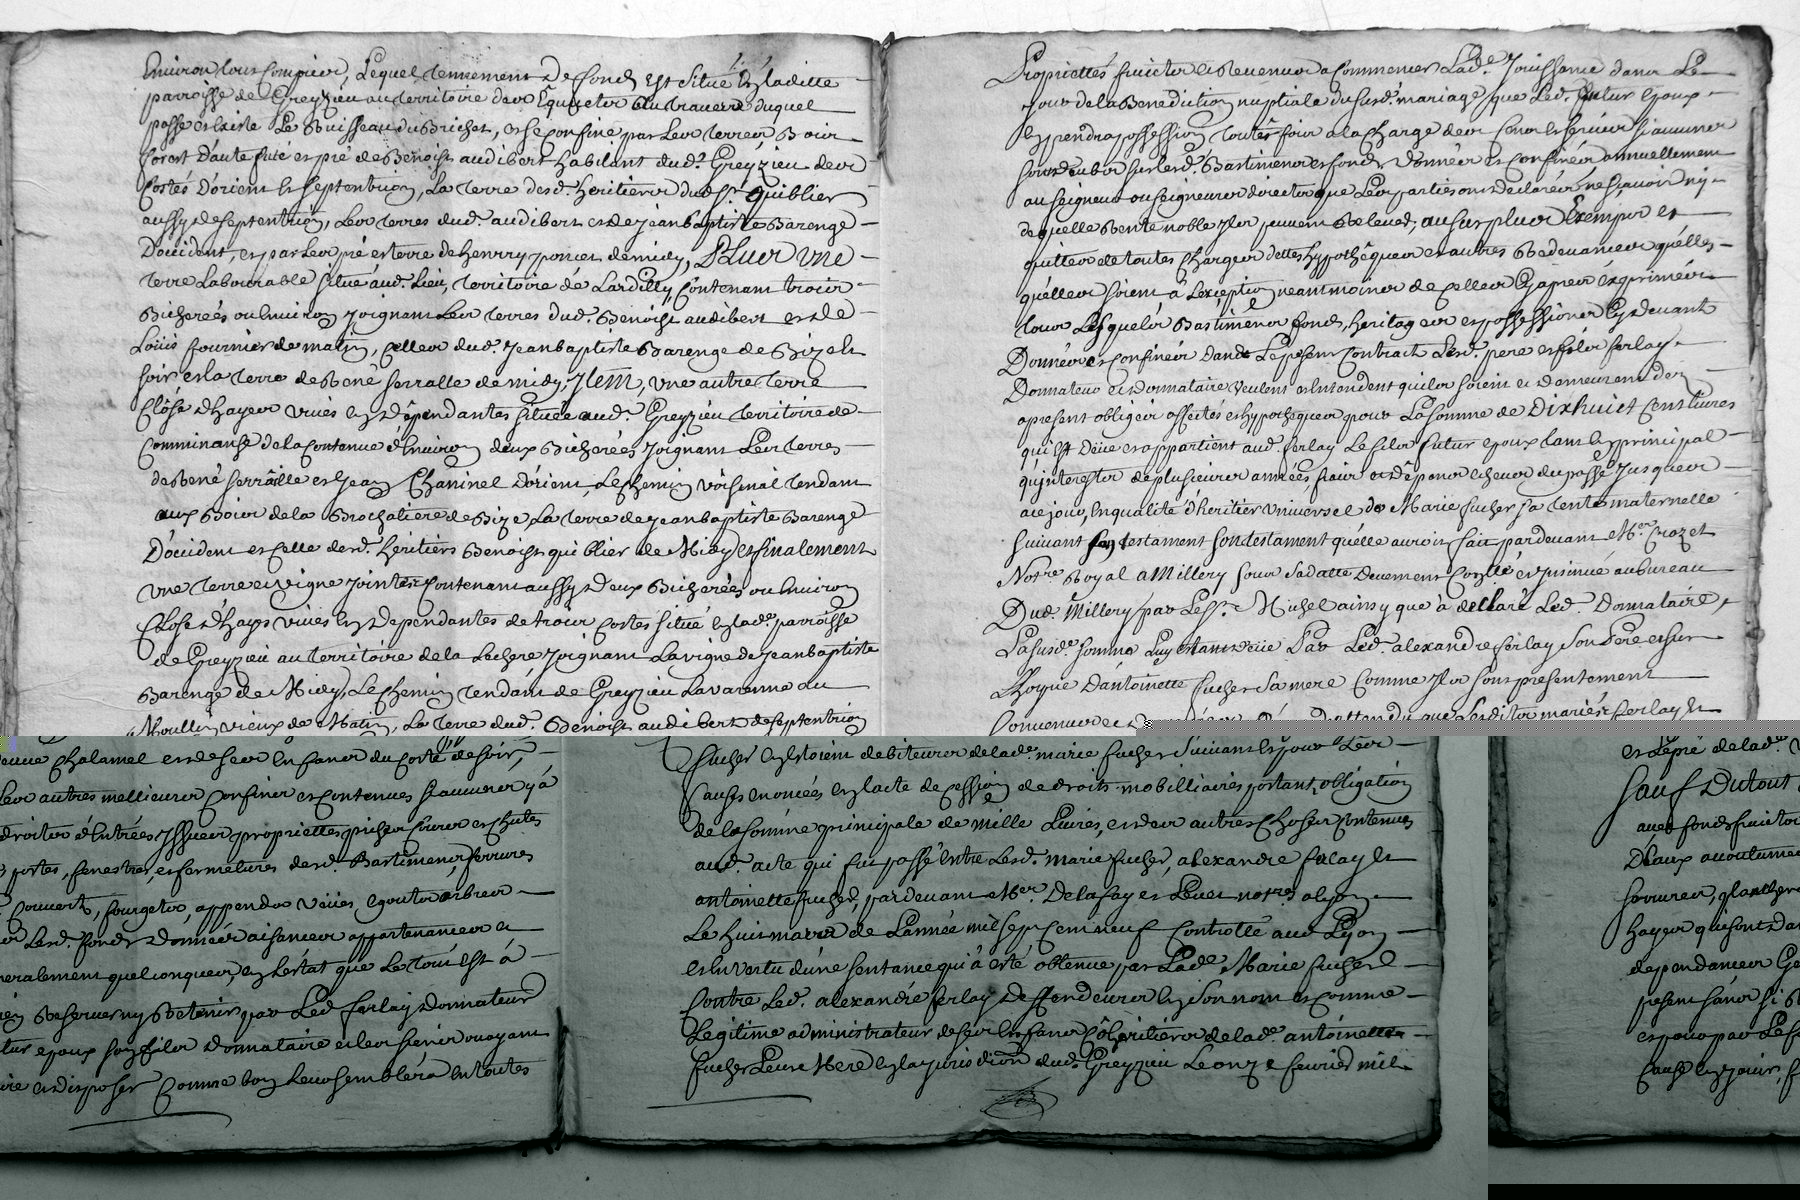 Environ tout Compier, Lequel tennement De fond est situé En laditte
parroisse de Greyzieu au territoire deux Equietor Au travers duquel
passe et existe Le Ruisseau du Richer, et se Confine par Les terres Bois
forest D'aute futé et pré de Benoist audibert habitant dud. Greyzieu deux
Costés D'orient et septentrion, La terre desd. heritiers dud. Sr. quiblier
aussy de septentrion, Les terres dud. audibert et de jean baptiste Barenge
D'occident, et par Les pré et terre de henry poncet de midy, Plus une
terre Labourable situé aud. Lieu, territoire de Lardilly, Contenant trois
Bicherées ou Environ joignant Les terres dud. Benoist audibert et de
Louis fournier de matin, Celles dud. jean baptiste Barenge de Bize et
soir et la terre de René serralle de midy, Item, une autre terre
Close d'hayes vives En dépendantes située aud. Greyzieu territoire de
Comminange de la Contenue d'Environ deux Bicherées joignant Les terres
de René serralle et jean Chaninel D'orient, Le chemin voisinal tendant
aux Bois de la Brochatiere de Bize, La terre de jean baptiste Barenge
D'occident et Celle desd. heritiers Benoist quiblier de Midy et finalement
une terre et vigne jointes Contenant aussy Deux Bicherées ou Environ
Close d'hayes vives En Dependantes de trois Costés situé En lad. parroisse
de Greyzieu au territoire de la Lochere joignant La vigne de jean baptiste
Barenge de Midy, Le chemin tendant de Greyzieu La varenne au
Moullin vieux de Matin, La terre dud. Benoist audibert de septentrion
Proprietés fruicts et Revenus a Commencer Lade. jouissance dans Le
jour de la Benediction nuptiale du susd. mariage que Led. futur Epoux
En prendra possession toutes fois a la Charge des Cens et servis si aucuns
sont deubs sur lesd. Bastiments et fonds donnés et Confinés annuellement
au seigneur ou seigneurs directs que Les parties ont déclarés ne sçavoir ny
de quelle Rente noble ils peuvent Relever, au surplus Exempts et
quittes de toutes Charges dettes hypothèques et autres Redevances quelles
quelles soient, à L'exception neantmoins de Celles Cy après exprimées
tous Lesquels Bastiments fonds, heritages et possessions Cy devant
Donnés et Confinés Dans Le present Contract Lesd. pere et fils ferlay
Donnateur et Donnataire veulent et Entendent quils soient et demeurent dez
apresent obligés affectés et hypothequés pour La somme de Dixhuict Cent livres
qui est Deüe et appartient aud. ferlay Le fils futur epoux tant En principal
qu'interest de plusieurs années, fraix et dépens Echeus du passé Jusques
aujour, En qualité d'heritier universel de Marie fucher sa tente maternelle
suivant son testament son testament quelle auroit fait pardevant Mer. Crozet
Notre Royal a Millery sous sa datte Deuement Conllé et jnsinué au bureau
Dud. Millery par Le Sr. Michel ainsy que à dellaré Led. Donnataire,
La susde. somme Luy Estant deüe Par Led. alexandre ferlay son Pere et sur
L'hoyrie D'antoinette fucher sa mere Comme Ils sont presentement
Convenus et
Chalamel et de ses Enfans du Costé de soir,
Leur autres meillieurs Confins et Contenues si aucuns y à
droits d'Entrées Issues proprietés prises Cours et chutes
portes, fenestres, et fermetures desd. Bastiments, ferrures
Couverts, fourgets, appendes vëues Egouts arbres
Lesd. fonds Donnés aisances appartenances et
generalement quelconques, En L'estat que Le tout Est à
Reserver ny Retenir par Led. ferlay Donnateur
futur epoux son fils Donnataire et les siens voyant
et disposer Comme bon Leur semblera En toutes
fucher Estoient debiteurs de lade. marie fucher suivant Et pour Les
Causes Enoncées En l'acte de Cession de droits mobilliaires portant obligation
de la somme principale de Mille Livres, et des autres Choses Contenues
aud. acte qui fut passé Entre Lesd. marie fucher, alexandre ferlay Et
antoinette fucher, pardevant Mer. Delafay et Levet notres. a Lyon
Le huit mars de L'année mil sept Cent neuf Controllé aud. Lyon
et En vertu d'une sentance qui à esté obtenue par Lade. Marie fucher
Contre Led. alexandre ferlay Deffendeur En son nom et Comme
Legitime administrateur de ses Enfans Cohéritiers de lade. antoinette
fucher Leur Mere En la jurisdiction dud. Greyzieu Le onze fevrier mil
et Le pré de lad.
sauf Dutout
avec fonds fruicts
D'eaux accoutumée
hayes qui sont
dependances
present sans si
et pour par Les
Cause